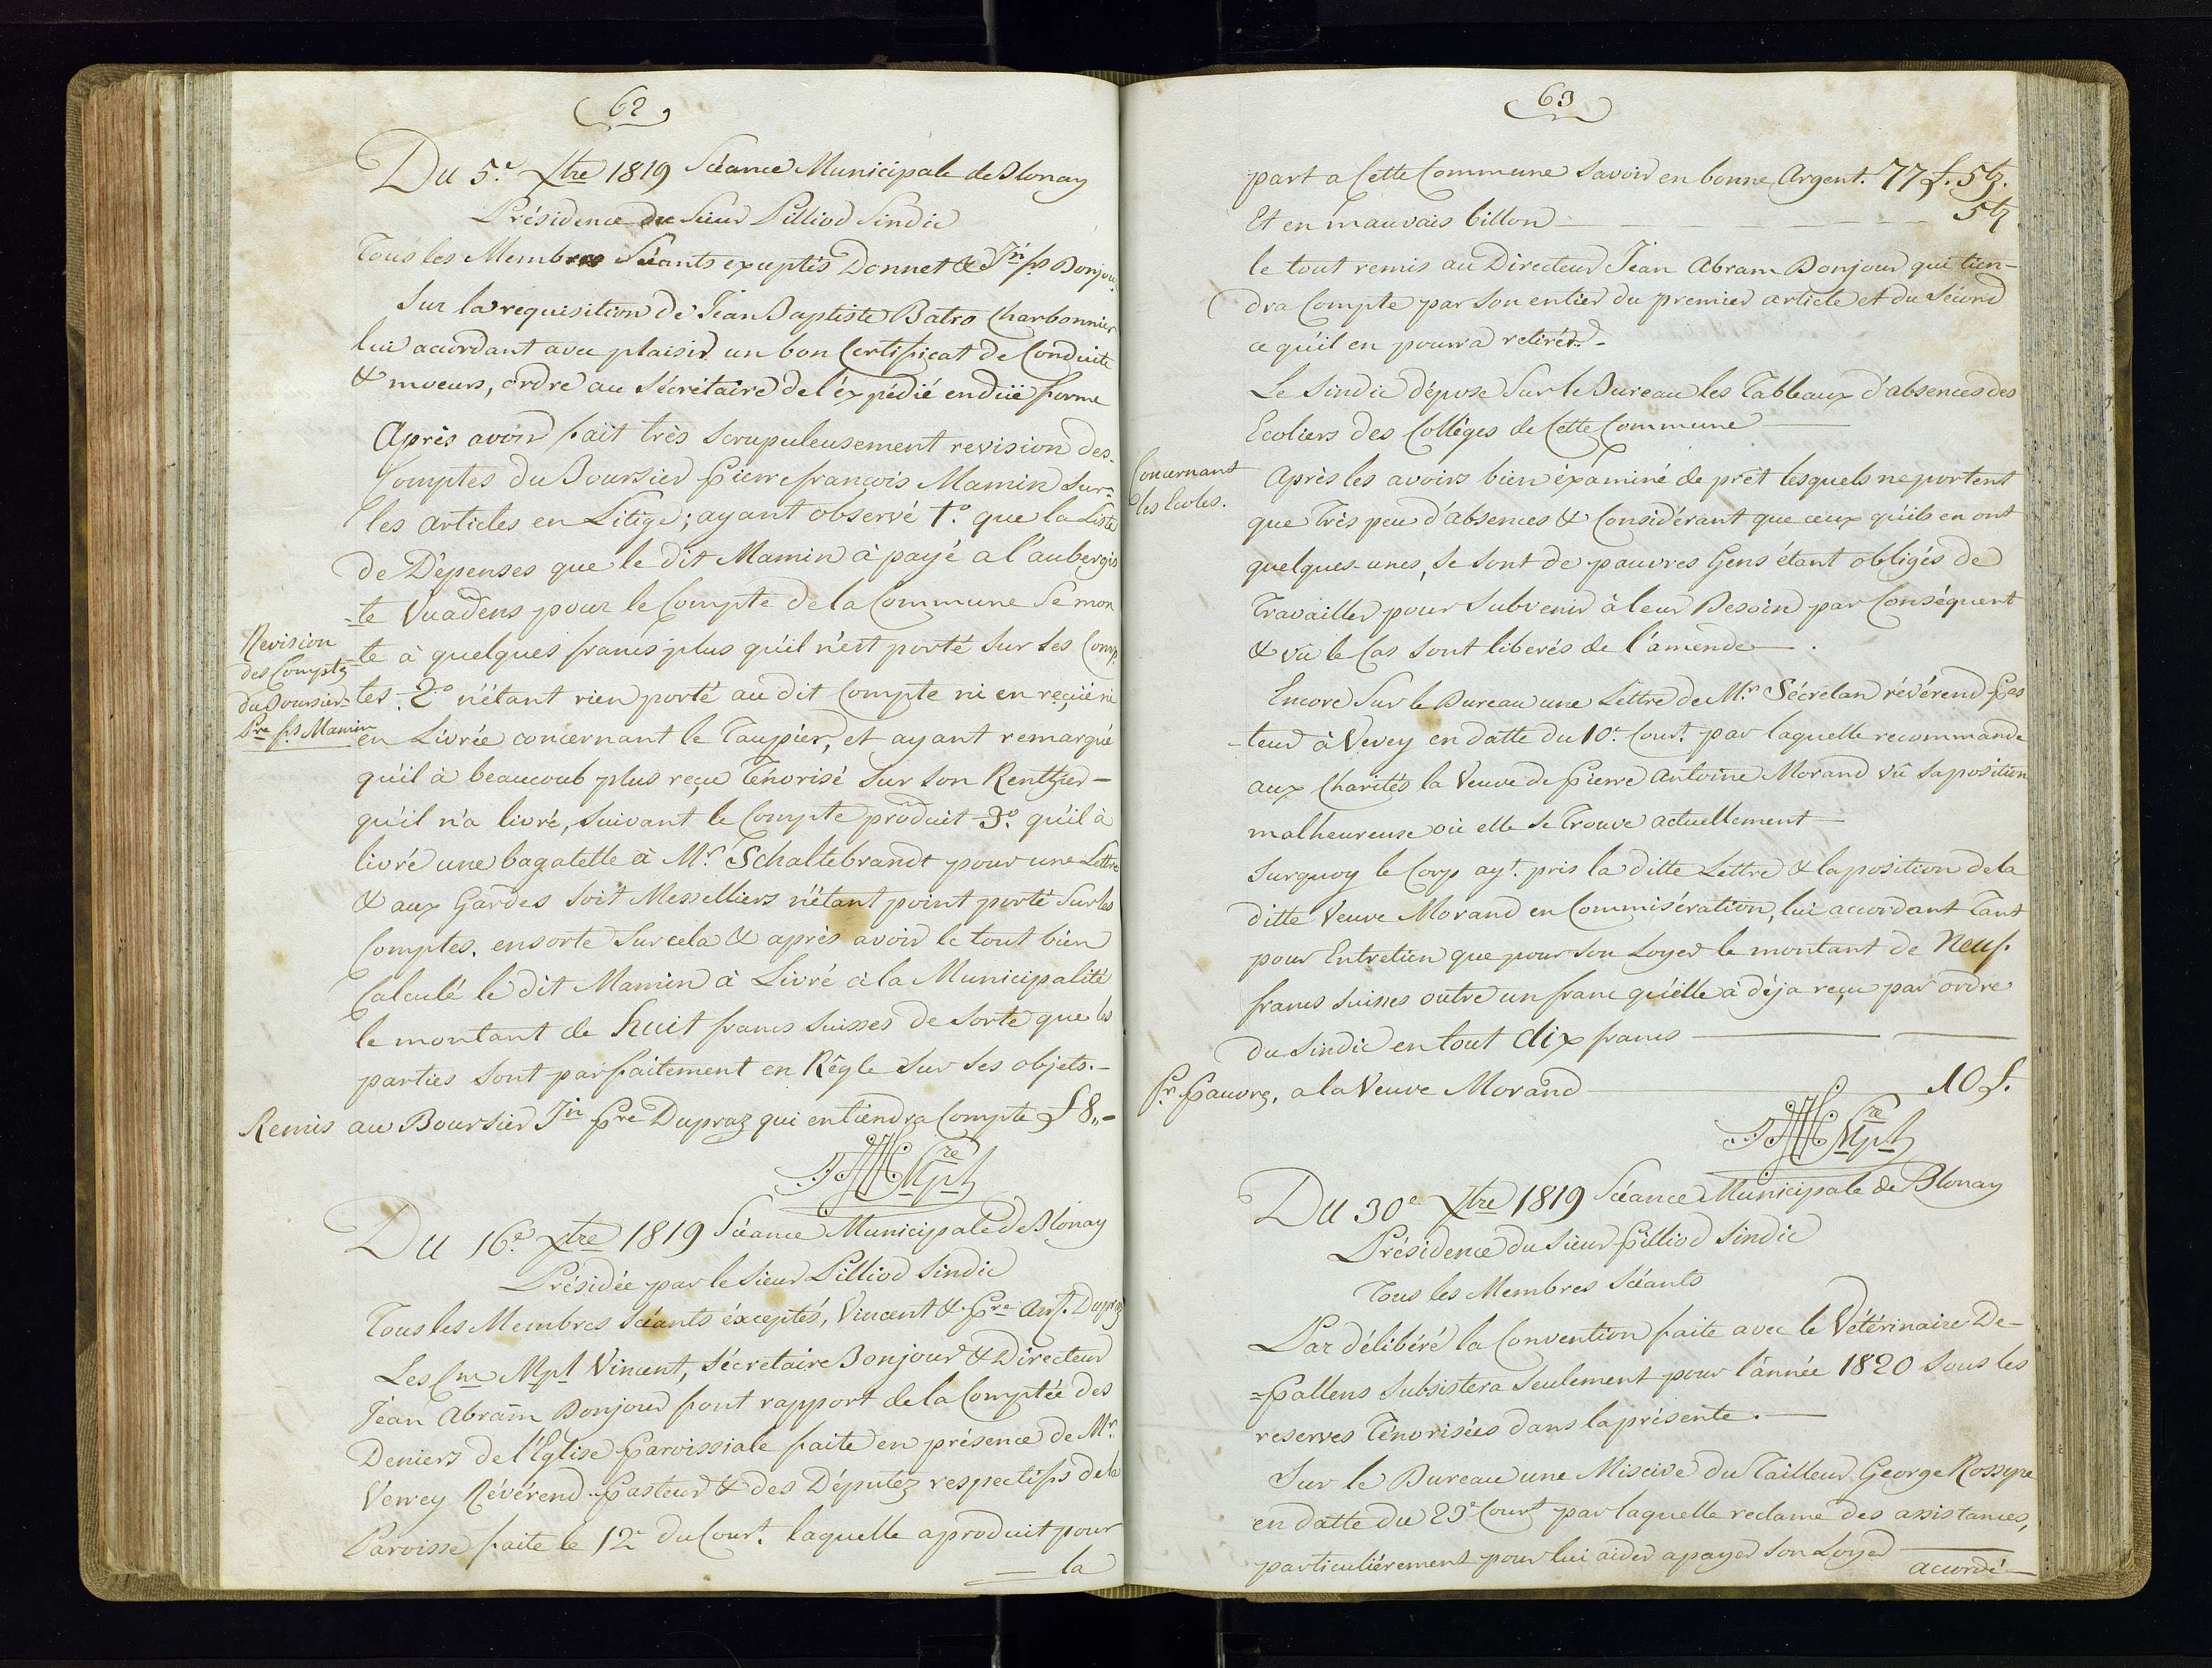 62
Du 5.e Xbre 1819 Séance Municipale de Blonay
Présidence du Sieur Pilliod Sindic
Tous les Membres Séants exceptés Donnet & Jn fs Bonjour
Sur la requisition de Jean Baptiste Batro Charbonnier
lui acordant avec plaisir un bon Certificat de Conduite
& moeurs, ordre au Sécrétaire de l'éxpédié en düe forme
Après avoir fait très scrupuleusement revision des
Comptes du Boursier Pierre françois Mamin Sur=
les articles en Litige; ayant observé 1.o que la Liste
de Dépenses que le dit Mamin à payé a l'aubergis
-te Vuadens pour le Compte de la Commune Se mon
te à quelques francs plus qu'il n'est porté sur ses Comp
Revision
des Comptz
du Boursier
Pre fs Mamin
tes. 2.o n'étant rien porté au dit Compte ni en reçüe ni
en Livrée concernant le Taupier, et ayant remarqué
qu'il à beaucoub plus reçu Ténorisé Sur Son Renttier-
qu'il n'a livré, suivant le Compte produit 3.o qu'il à
livré une bagatelle à Mr. Schaltebrandt pour une Lettre
& aux Gardes soit Messelliers n'étant point porté Sur les
Comptes. ensorte Sur cela & après avoir le tout bien
Calculé le dit Mamin à Livré à la Municipalité
le montant de huit francs Suisses de Sorte que les
parties sont parfaitement en Règle Sur Ses objets.-
Remis au Boursier Jn Pre Dupraz qui en tiendra Compte f 8,,-
Du 16.e Xbre 1819 Séance Municipale de Blonay
Présidée par le Sieur Pilliod Sindic
Tous les Membres Séants éxceptés, Vincent & Pre Ant. Dupraz
Les Cns Mpl Vincent, Sécretaire Bonjour & Directeur
Jean Abram Bonjour font rapport de la Comptée des
Deniers de l'Eglise Paroissiale faite en présence de Mr.
Verrey Révérend Pasteur & des Députez respectifs de la
Paroisse faite le 12e du Cour.t laquelle a produit pour
la
63
part a Cette Commune Savoir en bonne Argent. 77 f. 5 bz.
Et en mauvais billon 5 bz
le tout remis au Directeur Jean Abram Bonjour qui tien-
dra Compte par Son entier du premier article et du Sécond
ce qu'il en pourra retirér.-
Le Sindic dépose Sur le Bureau les Tableaux d'absences des
Ecoliers des Collèges de Cette Commune
Concernant
les Ecoles.
Après les avoirs bien éxaminé de prêt lesquels ne portent
que Très peu d'absences & Considérant que ceux qu'ils en ont
quelques-unes, se sont de pauvres Gens étant obligés de
Travailler pour Subvenir à leur Besoin par Conséquent
& vû le Cas sont liberés de l'amende.
Encore Sur le Bureau une Lettre de Mr. Sécrétan révérend Pas
-teur à Vevey en datte du 10e. Cour.t par laquelle recommande
aux Charités la Veuve de Pierre Antoine Morand vû sa position
malheureuse où elle Se Trouve actuellement
Surquoy le Corp ay.t pris la ditte Lettre & la position de la
ditte Veuve Morand en Commisération, lui accordant Tant
pour Entretien que pour Son Loyer le montant de Neuf.
francs Suisses outre un franc qu'elle à déja reçu par ordre
du Sindic en tout dix francs
Pr. Pauvre, a la Veuve Morand 10 f.
Du 30e Xbre 1819 Séance Municipale de Blonay
Présidence du Sieur Pilliod Sindic
Tous les Membres Séants
Par délibéré la Convention faite avec le Vétérinaire De-
=Pallens Subsistera Seulement pour l'année 1820 Sous les
reserves Ténorisées dans la présente.
Sur le Bureau une Miscive du Tailleur George Rossyre
en datte du 23e Cour.t par laquelle reclame des assistances,
particuliérement pour lui aider a payer Son Loyer
acordé